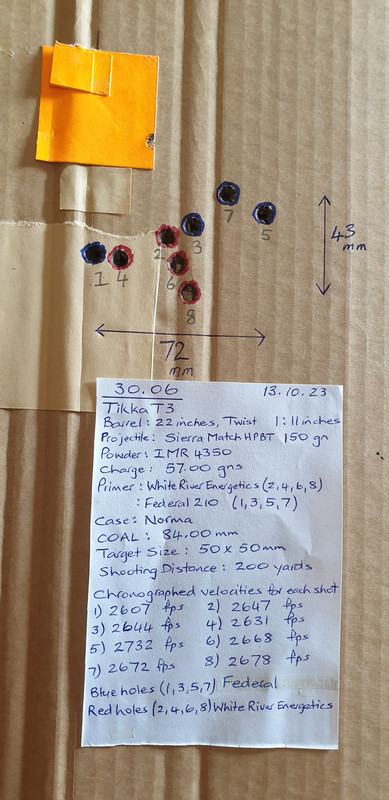 7
3
5
2
1 4
6
8
43 mm
72 mm
30.06 13.10.23
Tikka T3
Barrel: 22 inches, Twist 1:11 inches
Projectile: Sierra Match HPBT 150 gn
Powder: IMR 4350
Charge: 57.00 gns
Primer: White River Energetics (2,4,6,8)
: Federal 210 (1,3,5,7)
Case: Norma
COAL: 84.00 mm
Target Size: 50 x 50mm
Shooting Distance: 200 yards
Chronographed velocities for each shot
1) 2607 fps 2) 2647 fps
3) 2644 fps 4) 2631 fps
5) 2732 fps 6) 2668 fps
7) 2672 fps 8) 2678 fps
Blue holes (1,3,5,7) Federal
Red holes (2,4,6,8) White River Energetics